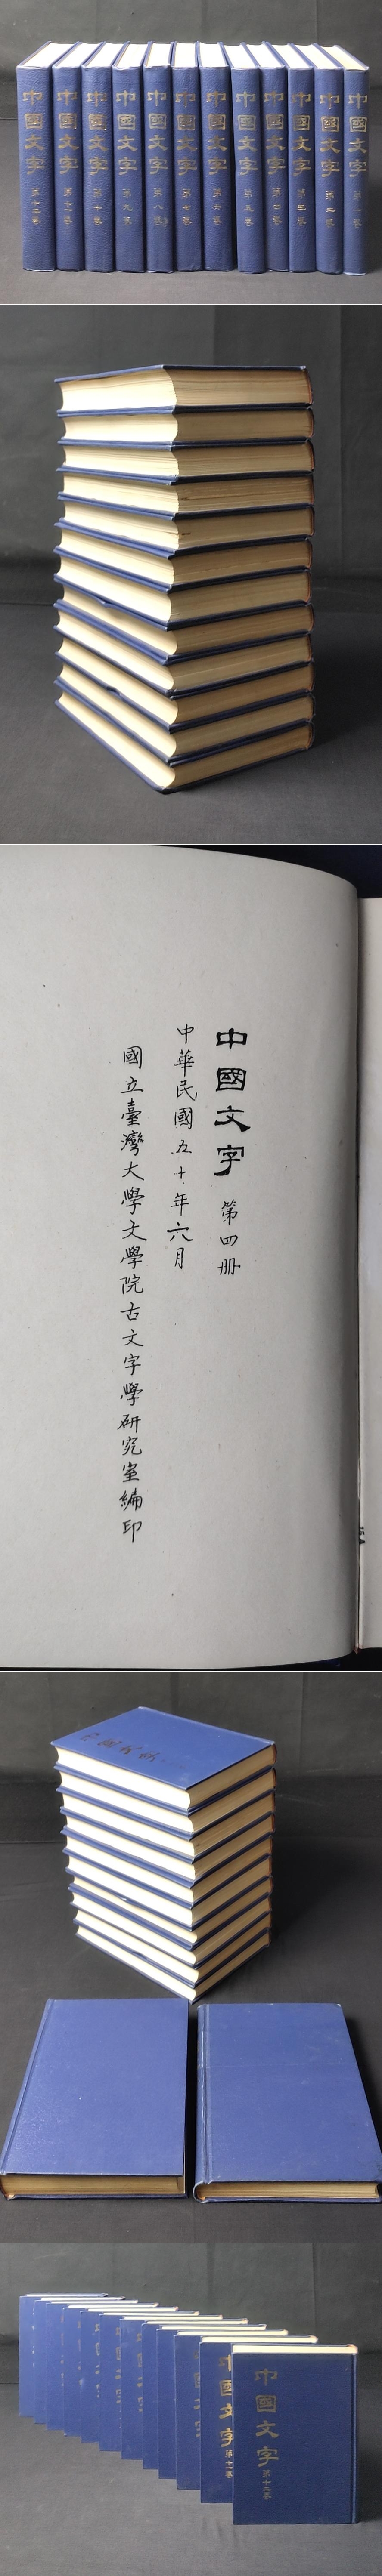 中國文字 第十二卷
中國文字 第十一卷
中國文字 第十卷
中國文字 第九卷
中國文字 第八卷
中國文字 第七卷
中國文字 第六卷
中國文字 第五卷
中國文字 第四卷
中國文字 第三卷
中國文字 第二卷
中國文字 第一卷
中國文字 第四册
中華民國五十年六月
國立臺灣大學文學院古文字學研究室編印
中國文字
中國文字 第十一卷
中國文字 第十二卷